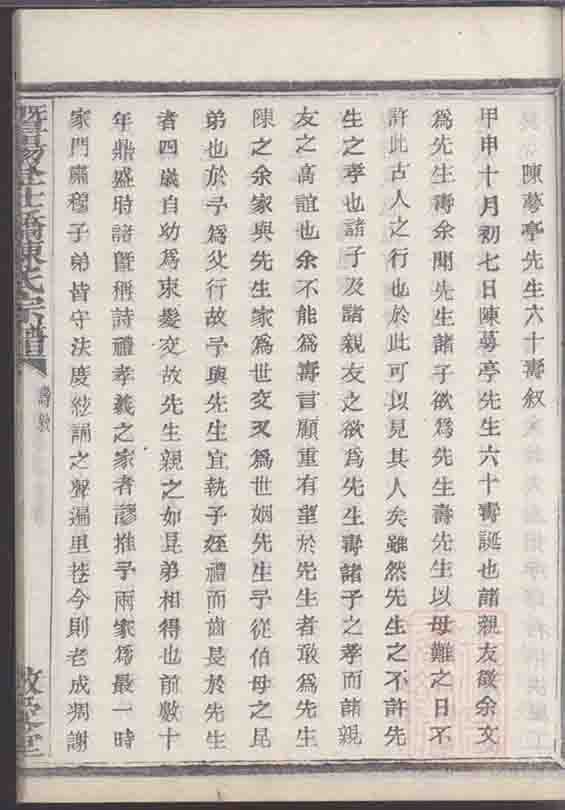 陳蕚亭先生六十壽叙
甲申十月初七日陳蕚亭先生六十壽誕也諸親友徵余文
爲先生壽余聞先生諸子欲爲先生壽先生以母難之日不
許此古人之行也於此可以見其人矣雖然先生之不許先
生之孝也諸子及諸親友之欲爲先生壽諸子之孝而諸親
友之高誼也余不能爲壽言願重有望於先生者敢爲先生
陳之余家與先生家爲世交又爲世姻先生予從伯母之昆
弟也於予爲父行故予與先生宜執子姪禮而齒長於先生
者四歲自幼爲束髮交故先生親之如昆弟相得也前數十
年鼎盛時諸曁稱詩禮孝義之家者謬推予兩家爲最一時
家門肅穆子弟皆守法度絃誦之聲遍里巷今則老成凋謝
陳氏宗譜
壽敘
敦堂